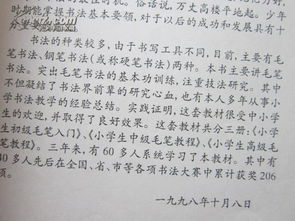 俗话说,万丈高楼平地起。少年
时期能掌握书法基本要领,对于以后的成功和发展具有十
分重要
书法的种类较多,由于书写工具不同,目前,主要有毛
笔书法、钢笔书法(或称硬笔书法)两种。本书主要讲毛笔
书法。突出毛笔书法的基本功训练,注重技法研究。其中
不但凝结了书法界前辈的研究心血,也有本人多年从事小
学书法教学的经验总结。实践证明,这套教材很受中小学
生的欢迎,并取得了良好效果。这套教材共分三册:《小学
生初级毛笔入门》、《小学生中级毛笔教程》、《小学生高级毛
笔教程》。三年来,有60多人系统学习了本教材。其中有
40多人先后在全国、省、市等各项书法大赛中累计获奖206
项。
一九九八年十月八日